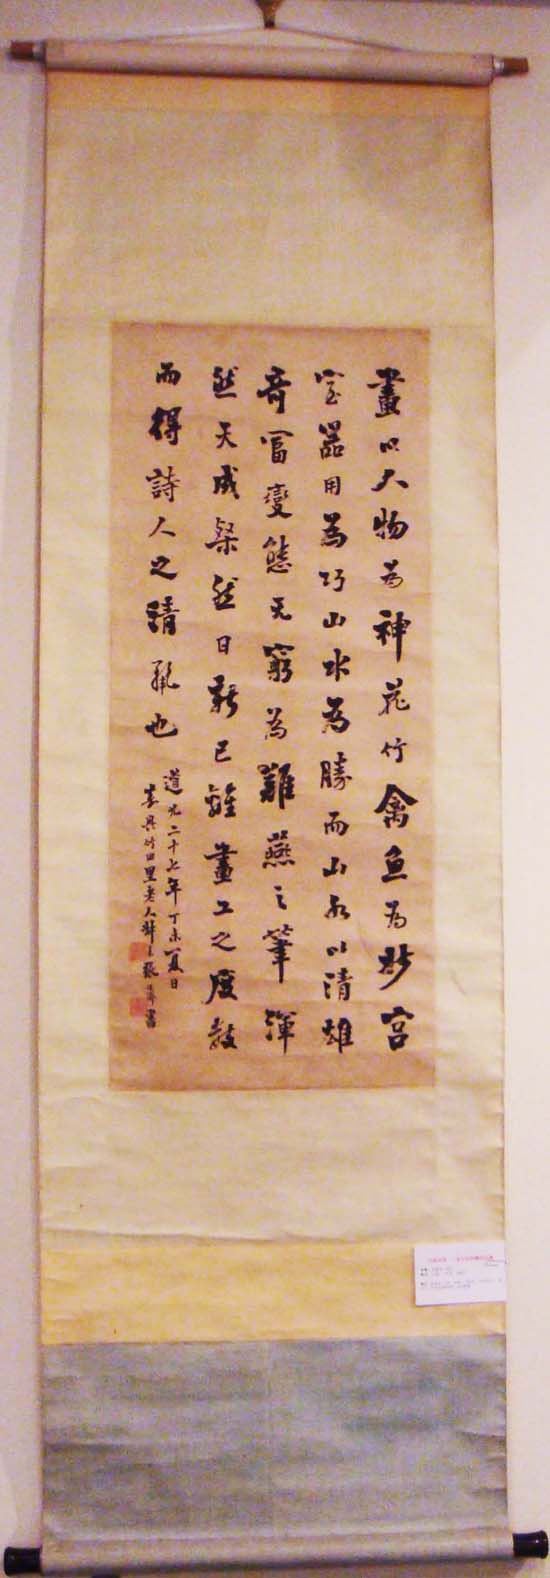 畫以人物為神花竹禽魚為妙宮
室器用為巧山水為勝而山水以清雄
奇富變態无窮為難燕之筆渾
然天成粲然日新已離畫工之度數
而得詩人之清麗也
道光二十七年丁未夏日
嘉興竹田里老人 張 書